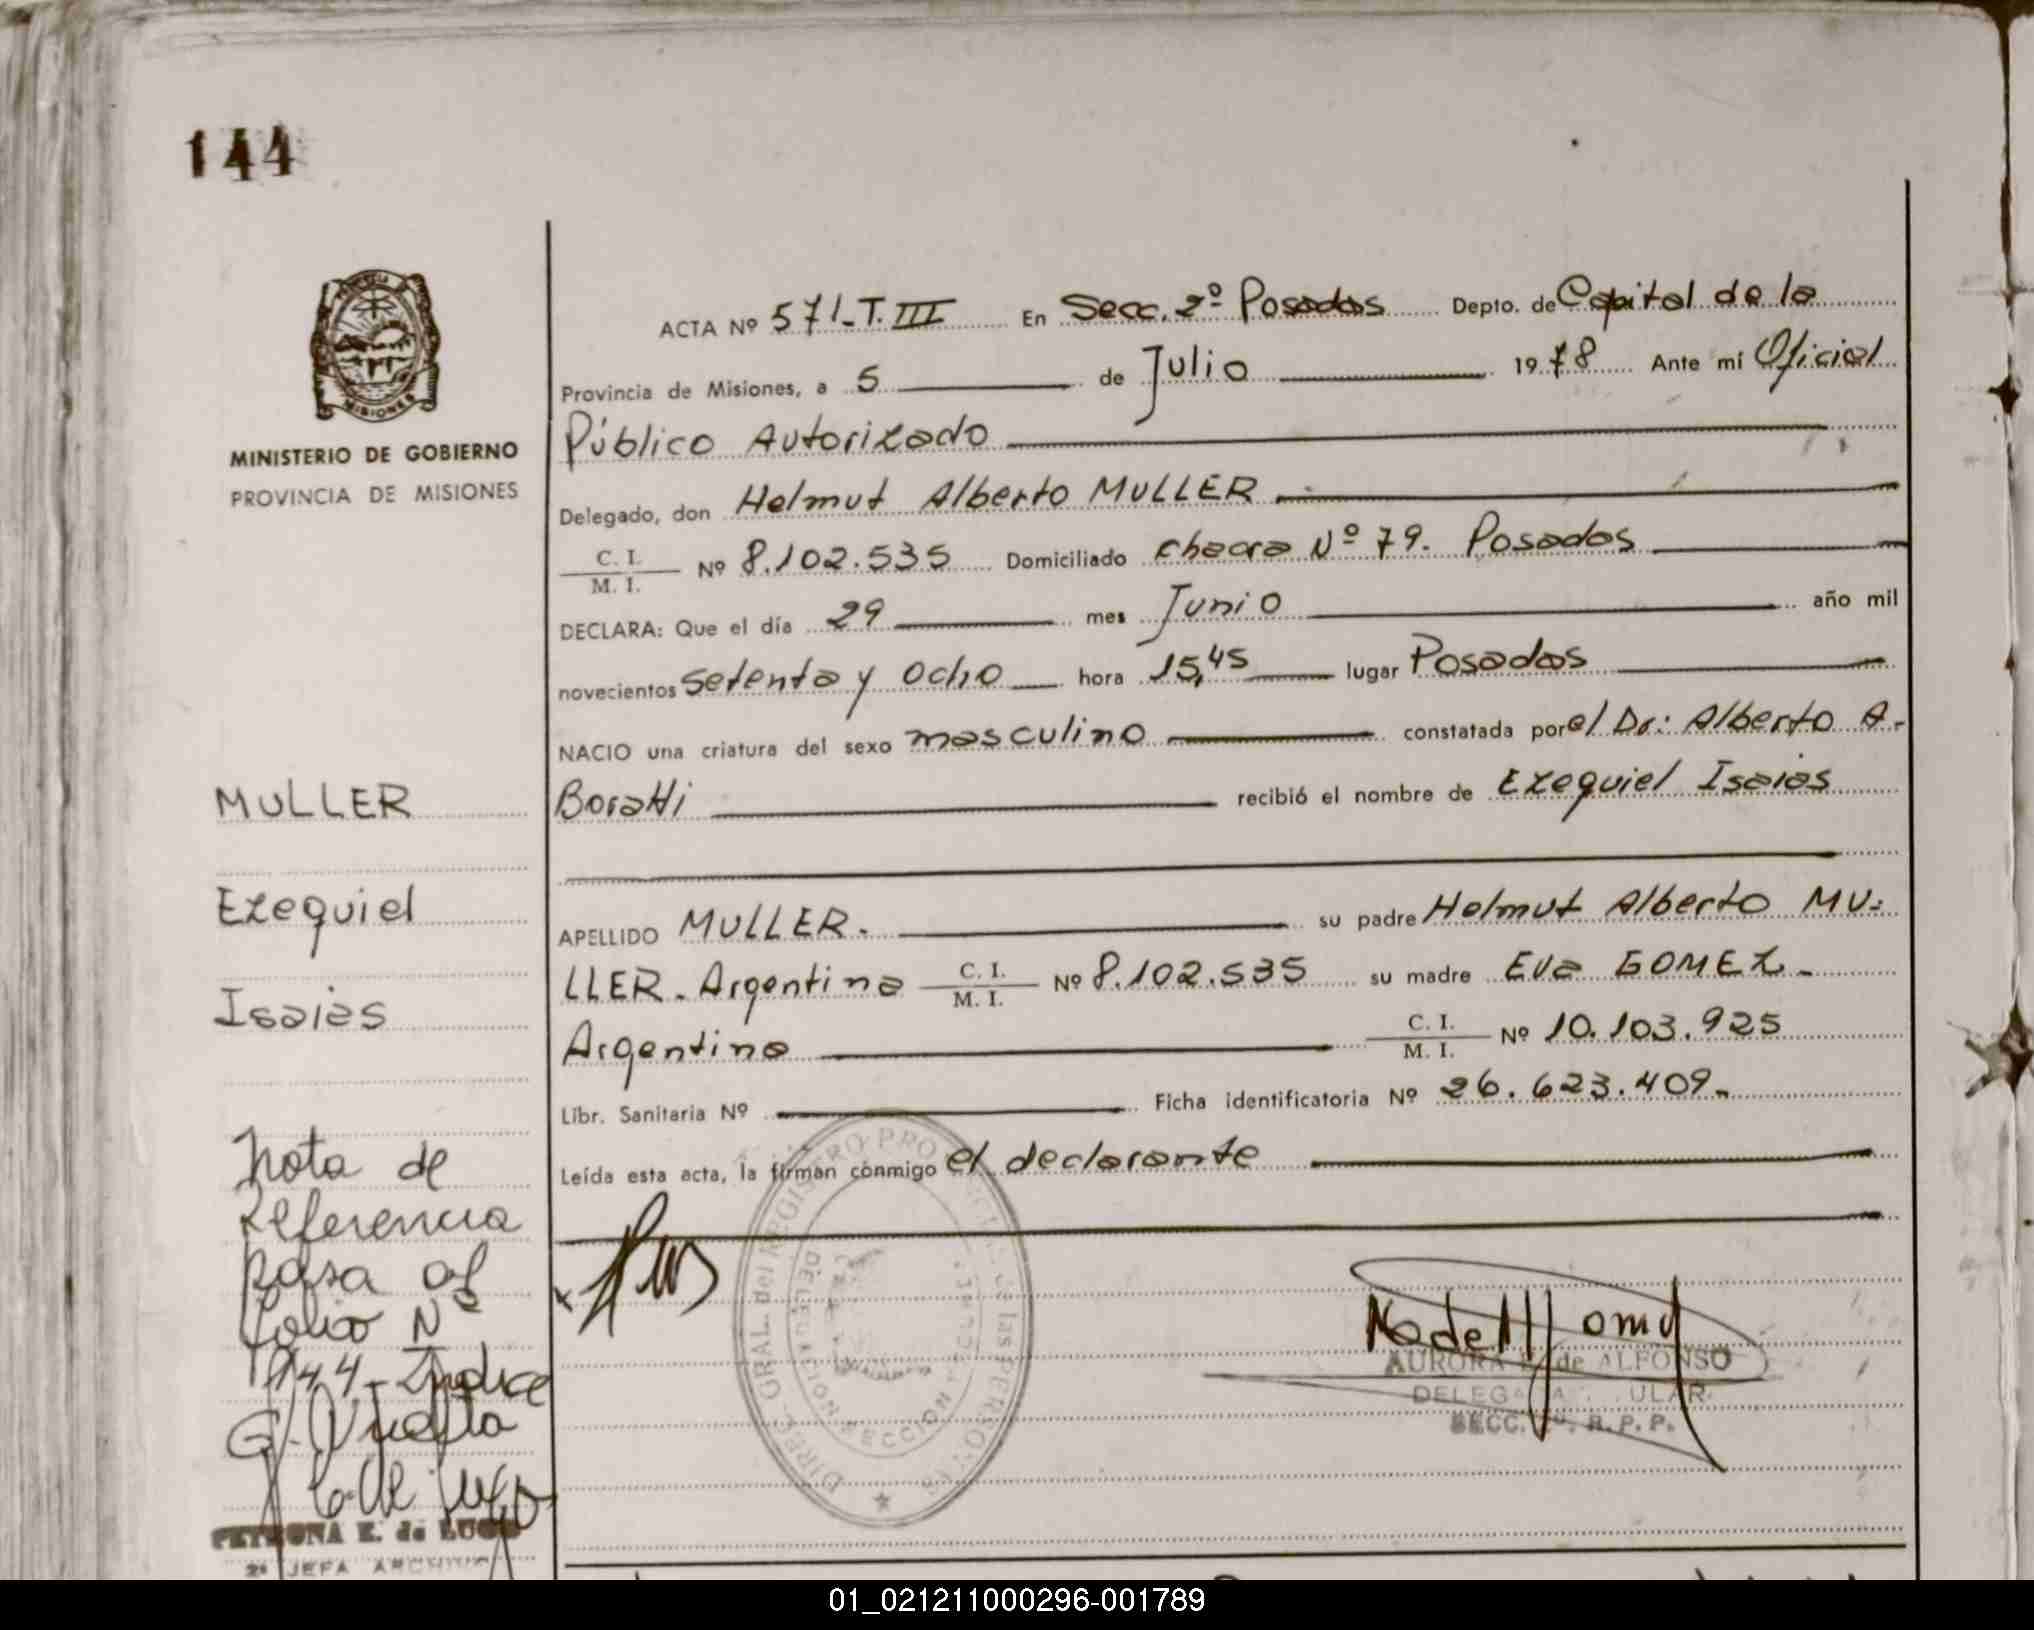 144
MISIONES
MINISTERIO DE GOBIERNO
PROVINCIA DE MISIONES
ACTA Nº 571-T.III En Secc. 2º Posadas Depto. de Capital de la
Provincia de Misiones, a 5 de Julio 1978 Ante mí Oficial
Público Autorizado
Delegado, don Helmut Alberto MULLER
C. I.
M. I. Nº 8.102.535 Domiciliado chacra Nº 79. Posadas
DECLARA: Que el día 29 mes Junio año mil
novecientos setenta y ocho hora 15,45 lugar Posadas
NACIO una criatura del sexo masculino constatada por el Dr: Alberto A.
Boratti recibió el nombre de Ezequiel Isaias
APELLIDO MULLER. su padre Helmut Alberto MU-
LLER. Argentina C. I.
M. I. Nº 8.102.535 su madre Eva GOMEZ.
Argentina C. I.
M. I. Nº 10.103.925
Libr. Sanitaria Nº Ficha identificatoria Nº 26.623.409.
Leída esta acta, la firman conmigo el declarante
MULLER
Ezequiel
Isaias
Nota de
referencia
pasa al
folio Nº
1944 - Indice
G. Vuelta
PETRONA E. de LUGO
2ª JEFA ARCHIVO
DIREC. GRAL. del REGISTRO PROVINCIAL de las PERSONAS
DELEGACION SECCION
AURORA de ALFONSO
SECC. 2ª. R. P. P.
01_021211000296-001789